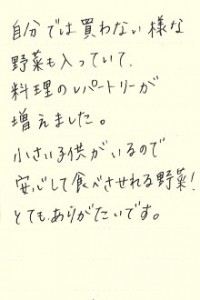 自分では買わない様な
野菜も入っていて、
料理のレパートリーが
増えました。
小さい子供がいるので
安心して食べさせれる野菜!
とてもありがたいです。